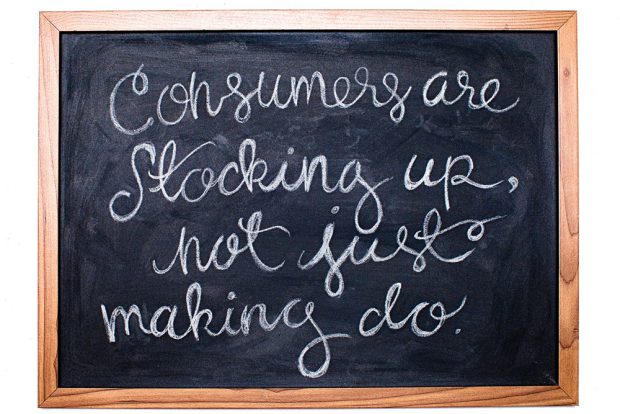 Consumers are
Stocking up,
not just
making do.